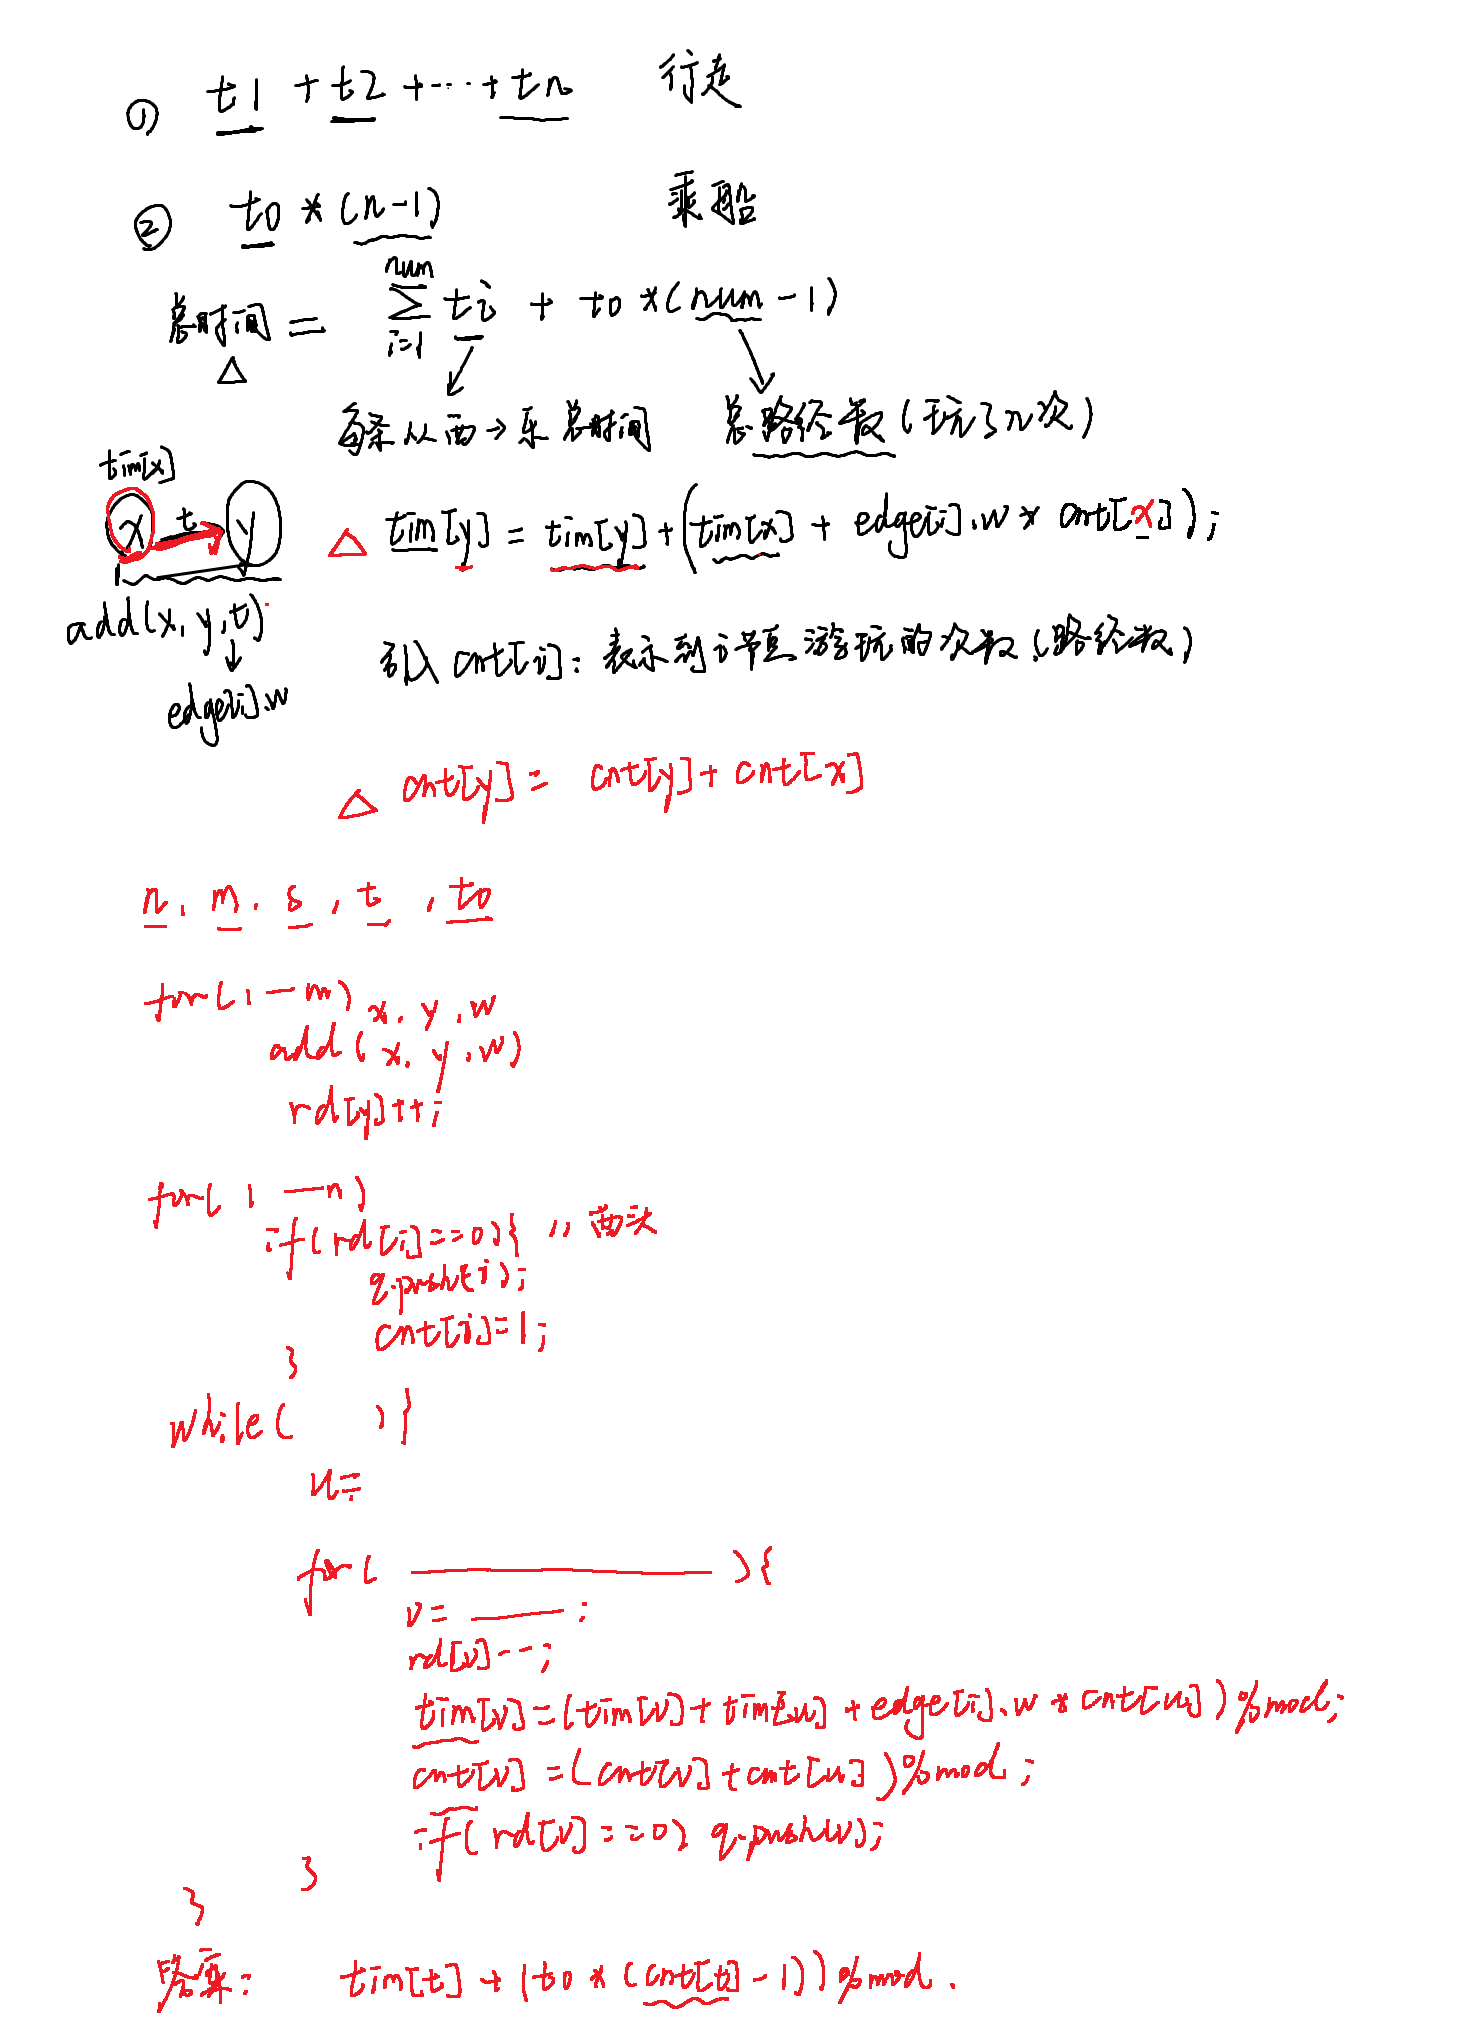 ① t1 + t2 + ... + tn 行走
② t0 * (n-1) 乘船
总时间 = num ∑ i=1 ti + t0 * (num - 1)
△
每条从西→东总时间 总路径数 (玩了n次)
tim[x]
x t y
△ tim[y] = tim[y] + (tim[x] + edge[i].w * cnt[x]);
add(x, y, t)
edge[i].w
引入 cnt[i]: 表示到 i 节点游玩的次数 (路径数)
△ cnt[y] = cnt[y] + cnt[x]
n, m, s, t, t0
for(1 — m) x, y, w
add(x, y, w)
rd[y]++;
for(1 — n)
if(rd[i]==0){ // 西头
q.push(i);
cnt[i]=1;
}
while( ){
u=
for( ){
v= ;
rd[v]--;
tim[v]=(tim[v]+tim[u]+edge[i].w*cnt[u])%mod;
cnt[v]=(cnt[v]+cnt[u])%mod;
if(rd[v]==0) q.push(v);
}
}
答案: tim[t]+(t0*(cnt[t]-1))%mod.